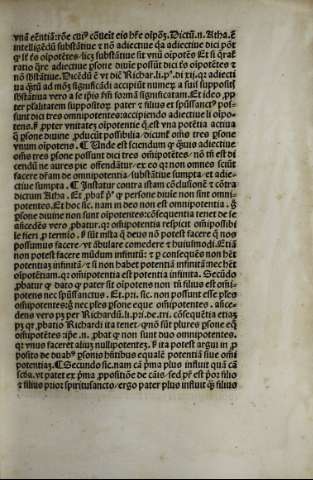 vnā eentiā: rōe cui⁹ cōueit eis hr̄e oīpōz. Dictū .n. Atha. ē
intelligēdū substātiue ⁊ nō adiectiue q̄a adiectiue dici pōt
substātiue sit vnū oīpotēs
ratio qr̄e adiectiue psone diuie possūt dici
nō s̄bstātiue. Dicēdū ē vt dic̄ Richar. li. p⁰. di xij. q̄ adiecti
ua q̄tū ad mōz significādi accipiūt numeꝝ a suis supposit
s̄bstātiua vero a se ip̄is s̄m formā significatam. Et ideo ꝓp
ter pluralitatem suppositoꝝ pater ⁊ filius et spūssanct⁹ pos
sunt dici tres omnipotentes: accipiendo adiectiue li oīpo
tens. s̄ ꝓpter vnitatē oīpotentie q̄ est vna potētia actiua
psone diuine producūt possibilia, dicunt̄ om̄s tres psone
vnum oīpotens. ¶ Unde est sciendum quis adiectiue
om̄s tres psone possunt dici tres om̄ipotētes, nō tn̄ est di
cendū ne aures pie offendāt̄ur, ex eo qt̄ non omnes sciūt
facere dr̄am de omnipotentia substātiue sumpta et adie
ctiue sumpta. ¶ Instatur contra istam cōclusionē ⁊ cōtra
dictum Atha. Et ꝓbat̄ p⁰ q̄ persone diuie non sunt omni
potentes. Et hoc sic. nam in deo non est omnipotentia. g̊
psone diuine non sunt oīpotentes: cōsequentia tenet de se
añcedēs vero ꝓbatur. q̄: om̄ipotentia respicit om̄e possibi
le fieri, p termio. s̄ sūt m̄lta q̄ deus nō potest facere q̄ nos
possumus facere, vt ābulare comedere ⁊ huiusmōi. Etiā
non potest facere mūdum infinitū: ⁊ p consequēs non h̄et
potentiaz infinitā ⁊ si non habet potentiā infinitā nec h̄et
oīpotētiam. q̄: om̄ipotentia est potentia infinita. Secūdo
ꝓbatur q̄ dato q̄ pater sit oīpotens non tn̄ filius est oīmi
potens nec spūssanctus. Et. pri. sic. non possunt esse ples
om̄ipotentes: g̊ nec ples psone eque omnipotentes. añce
dens vero pʒ per Richardū. li. pri. de. tri. cōsequētia etiaʒ
pʒ qr̄ ꝓbatio Richardi ita tenet, q̄ nō sūt plures psone eq̄
om̄ipotētes: ipe .n. ꝓbat q̄ non sunt duo omnipotentes.
q̄: vnus faceret aliuʒ nullipotenteʒ. s̄ ita potest argui in ꝓ
posito de duab⁹ psonis hñtibus equalē potentiā siue om̄i
potentiaʒ. ¶ Secundo sic. nam cā p̄ma plus influit quā cā
scd̄a. vt patet ex p̄ma ꝓpositiōe de cāis, sed pr̄ est p̄or filio
⁊ filius prior spiritusancto, ergo pater plus influit q̄ filius